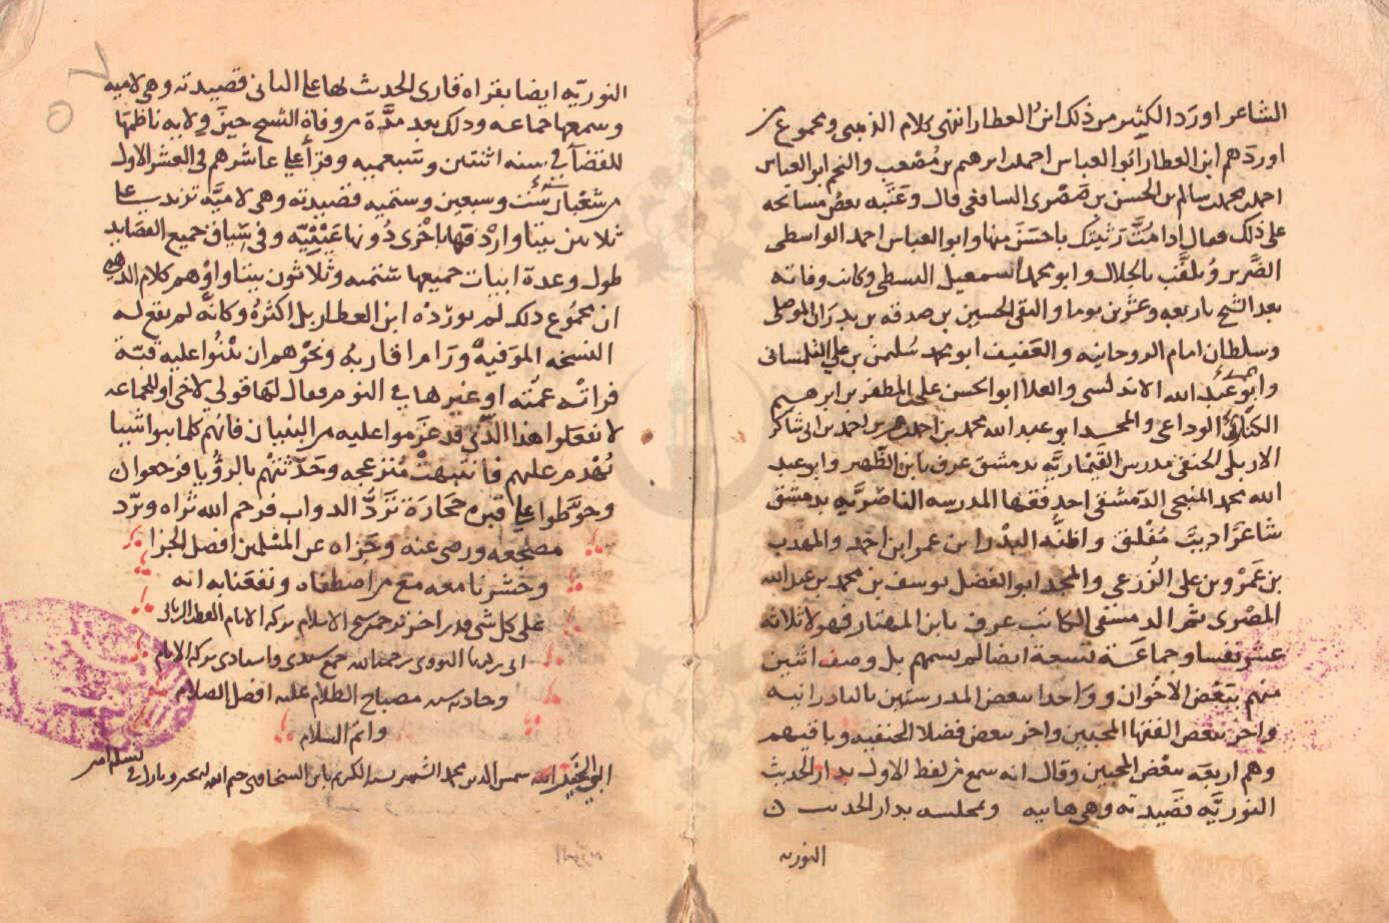 الشاعر اورد الكثير من ذلك ابن العطار انتهى كلام الذهبي ومجموع من
اوردهم ابن العطار ابو العباس احمد ابن ابرهيم بن مصعب والنجم ابو العباس
احمد بن محمد بن سالم بن الحسن بن صصرى الشافعي قال وعتبه بعض مشايخه
على ذلك فقال اذا مت رثيتك باحسن منها وابو العباس احمد الواسطي
الضرير ويلقب بالجلال وابو محمد اسمعيل البسطي وكانت وفاته
بعد الشيخ باربعه وعشرين يوما والتقى الحسين بن صدقه بن بدران الموصلي
وسلطان امام الروحانيه والعفيف ابو محمد سليمن بن علي التلمساني
وابو عبد الله الاندلسي والعلا ابو الحسن على المظفر بن ابرهيم
الكندي الوداعي والمجد ابو عبد الله محمد بن احمد بن عمر بن احمد بن ابي شاكر
الاربلي الحنفي مدرس القيمازيه بدمشق عرف بابن الظهير وابو عبد
الله محمد المنبجي الدمشقي احد فقها المدرسه الناصريه بدمشق
شاعر اديب مفلق واظنه البدر ابن عمر ابن احمد والمهذب
بن عمرو بن علي الزرعي والمجد ابو الفضل يوسف بن محمد بن عبد الله
المصرى ثم الدمشقي الكاتب عرف بابن المهتار فهولا ثلاثة
عشر نفسا وجماعة تسعة ايضا لم يسمهم بل وصف اثنين
منهم ببعض الاخوان وواحدا ببعض المدرسين بالبادرانيه
واخر ببعض الفقها المحبين واخر ببعض فضلا الحنفيه وباقيهم
وهم اربعه ببعض المحبين وقال انه سمع من لفظ الاول بدار الحديث
النوريه قصيدته وهي هاييه وبمجلسه بدار الحديث
النوريه
النوريه ايضا بقراه قارى الحديث لها على الثاني قصيدته وهي لاميه
وسمعها جماعه وذلك بعد مدة من وفاة الشيخ حين ولايه ناظمها
للقضآ في سنه اثنتين وسبعميه وقرأ على عاشرهم في العشر الاول
من شعبان سنة ست وسبعين وستميه قصيدته وهي لاميه تزيد على
ثلاثين بيتا واردفها باخرى دونها عينيه وفي سياق جميع القصايد
طول وعدة ابيات جميعها ستمية وثلاثون بيتا واوهم كلام الذهبي
ان مجموع ذلك لم يورده ابن العطار بل اكثره وكانه لم تقع له
النسخه الموفيه ورام اقاربه ونحوهم ان يبنوا عليه قبة
فراته عمته او غيرها في النوم فقال لها قولي لاخي او للجماعه
لا تفعلوا هذا الذي قد عزموا عليه من البنيان فانهم كلما بنوا شييا
تهدم عليهم فانتبهت منزعجه وحدثتهم بالرؤيا فرجعوا
وحوطوا على قبره حجارة ترد الدواب فرحم الله ثراه وبرد
مضجعه ورضى عنه وجزاه عن المسلمين افضل الجزا
وحشرنا معه مع من اصطفاه ونفعنا به انه
على كل شي قدير اخر ترجمة شيخ الاسلام بركه الانام القطب الرباني
ابي زكريا النووى رحمه الله جمع سيدى واستادى بركه الانام
وحادثه مصباح الظلام عليه افضل الصلاة
واتم السلام
ابي الخير شمس الدين محمد الشهير بابن السخاوي رحمه الله